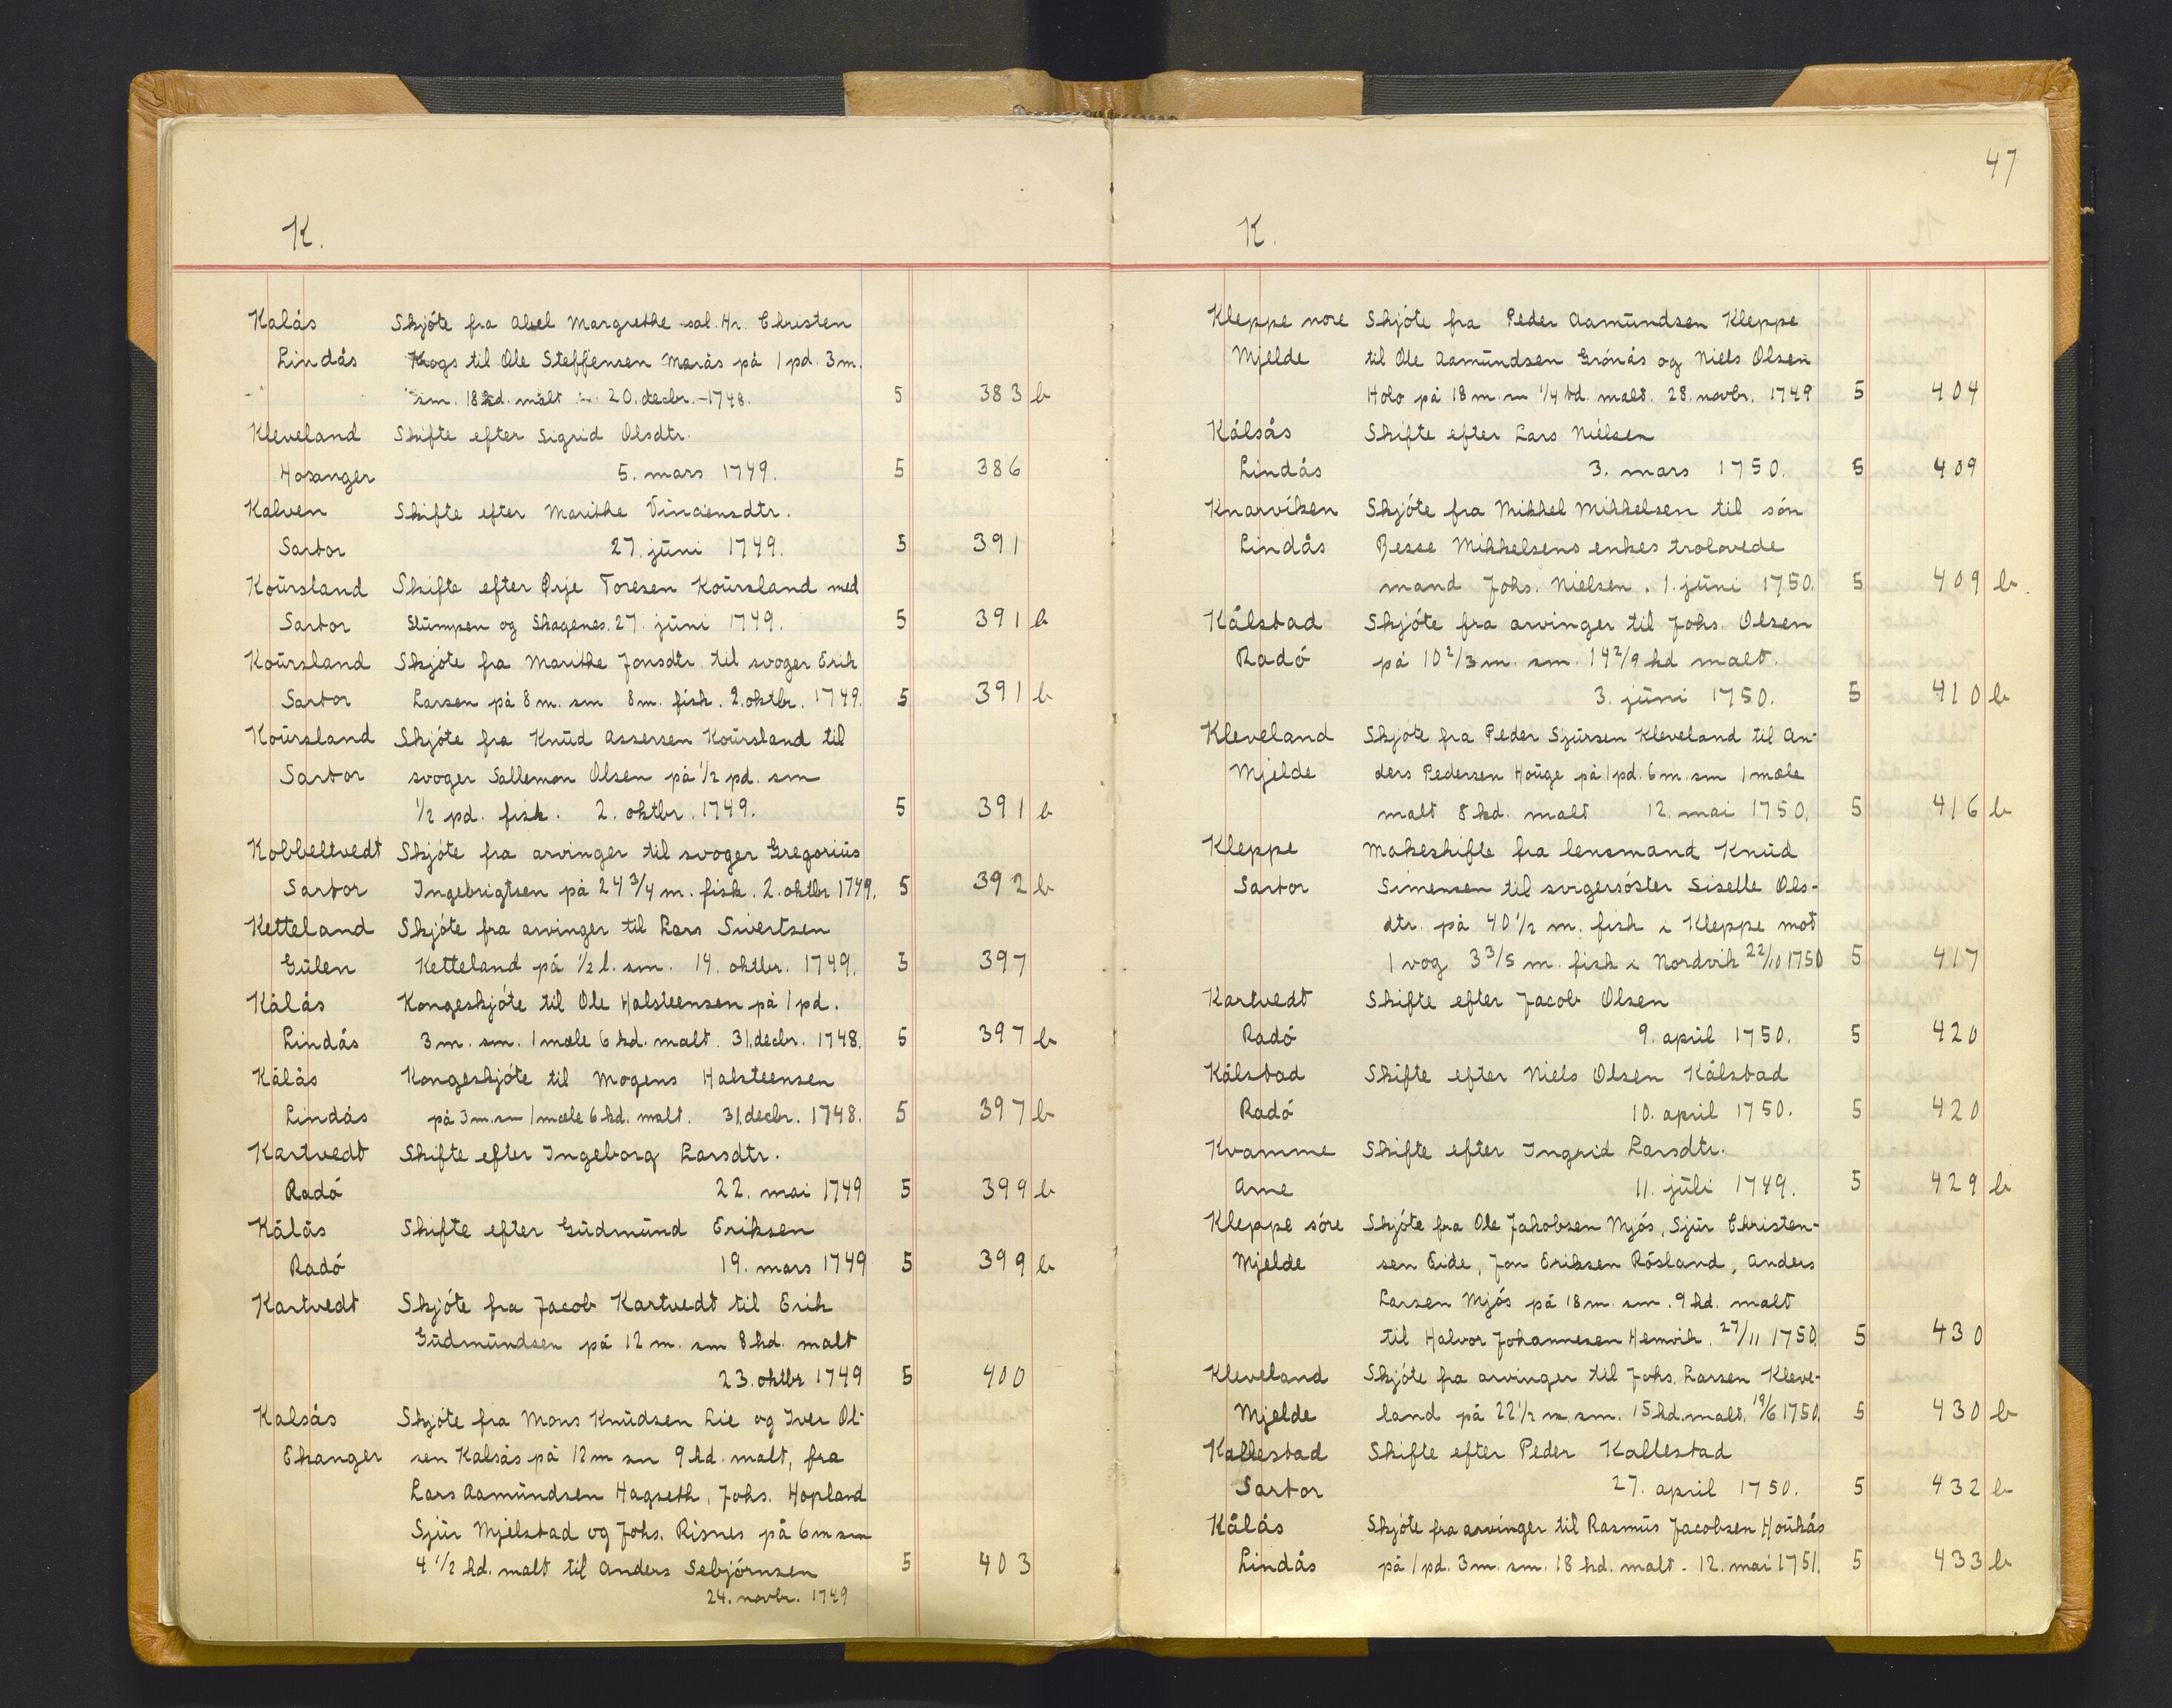 K.
Kalås Skjóte fra Abel Margrethe sal. Hr. Christen
Lindås Kogs til Ole Steffensen Marås på 1 pd. 3 m.
sm. 18 kd. malt - 20. decbr. - 1748. 5 383 b
Kleveland Skifte efter Sigrid Olsdtr.
Hosanger 5. mars 1749. 5 386
Kalven Skifte efter Marithe Vinciensdtr.
Sartor 27. jūni 1749. 5 391
Koūrsland Skifte efter Ørje Toresen Koūrsland med
Sartor Slūmpen og Skagenes. 27. jūni 1749. 5 391 b
Koūrsland Skjóte fra Marithe Jonsdtr. til svoger Erik
Sartor Larsen på 8 m. sm 8 m. fisk. 2. oktbr. 1749. 5 391 b
Koūrsland Skjóte fra Knūd Assersen Koūrsland til
Sartor svoger Sallemon Olsen på 1/2 pd. sm
1/2 pd. fisk. 2. oktbr. 1749. 5 391 b
Kobbeltvedt Skjóte fra arvinger til svoger Gregoriūs
Sartor Ingebrigtsen på 24 3/4 m. fisk. 2. oktbr 1749. 5 392 b
Ketteland Skjóte fra arvinger til Lars Sivertsen
Gūlen Ketteland på 1/2 l. sm. 14. oktbr. 1749. 5 397
Kålås Kongeskjóte til Ole Halsteensen på 1 pd.
Lindås 3 m. sm. 1 mæle 6 kd. malt. 31. decbr. 1748. 5 397 b
Kålås Kongeskjóte til Mogens Halsteensen
Lindås på 3 m. sm 1 mæle 6 kd. malt. 31. decbr. 1748. 5 397 b
Kartvedt Skifte efter Ingeborg Larsdtr.
Radó 22. mai 1749 5 399 b
Kålås Skifte efter Gūdmūnd Eriksen
Radó 19. mars 1749 5 399 b
Kartvedt Skjóte fra Jacob Kartvedt til Erik
Gūdmūndsen på 12 m. sm 8 kd. malt
23. oktbr 1749 5 400
Kalsås Skjóte fra Mons Knūdsen Lie og Iver Ol-
Ekanger sen Kalsås på 12 m sm 9 kd. malt, fra
Lars Aamūndsen Hagseth, Johs. Hopland
Sjūr Mjelstad og Johs. Risnes på 6 m sm
4 1/2 kd. malt til Anders Sebjórnsen 5 403
24. novbr. 1749
47
K.
Kleppe nore Skjóte fra Peder Aamūndsen Kleppe
Mjelde til Ole Aamūndsen Grónås og Niels Olsen
Holo på 18 m. sm 1/4 td. malt. 28. novbr. 1749 5 404
Kålsås Skifte efter Lars Nielsen
Lindås 3. mars 1750. 5 409
Knarviken Skjóte fra Mikkel Mikkelsen til són
Lindås Besse Mikkelsens enkes trolovede
mand Johs. Nielsen. 1. jūni 1750. 5 409 b.
Kålstad Skjóte fra arvinger til Johs. Olsen
Radó på 10 2/3 m. sm. 14 2/9 kd malt.
3. jūni 1750. 5 410 b
Kleveland Skjóte fra Peder Sjūrsen Kleveland til An-
Mjelde ders Pedersen Hoūge på 1 pd. 6 m. sm 1 mæle
malt 8 kd. malt 12. mai 1750. 5 416 b
Kleppe Makeskifte fra lensmand Knūd
Sartor Simensen til svigersóster Siselle Ols-
dtr. på 40 1/2 m. fisk i Kleppe mot
1 vog 3 3/5 m. fisk i Nordvik 22/10 1750 5 417
Kartvedt Skifte efter Jacob Olsen
Radó 9. april 1750. 5 420
Kålstad Skifte efter Niels Olsen Kålstad
Radó 10. april 1750. 5 420
Kvamme Skifte efter Ingrid Larsdtr.
Arne 11. jūli 1749. 5 429 b
Kleppe sóre Skjóte fra Ole Jakobsen Mjós, Sjūr Christen-
Mjelde sen Eide, Jon Eriksen Rósland, Anders
Larsen Mjós på 18 m. sm. 9 kd. malt
til Halvor Johannesen Hemvik. 27/11 1750. 5 430
Kleveland Skjóte fra arvinger til Johs. Larsen Kleve-
Mjelde land på 22 1/2 m. sm. 15 kd. malt. 19/6 1750. 5 430 b
Kallestad Skifte efter Peder Kallestad
Sartor 27. april 1750. 5 432 b
Kålås Skjóte fra arvinger til Rasmūs Jacobsen Hoūkås
Lindås på 1 pd. 3 m. sm. 18 kd. malt - 12. mai 1751. 5 433 b